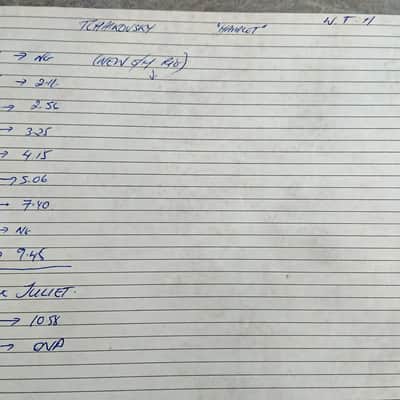 TCHAIKOVSKY "HAMLET" W.T. 11
→ NG (NEW 
→ 2.11.
→ 2.56
→ 3.25
→ 4.15
→ 5.06
→ 7.40
→ NG
→ 9.45
JULIET.
→ 10.58
→ OVA